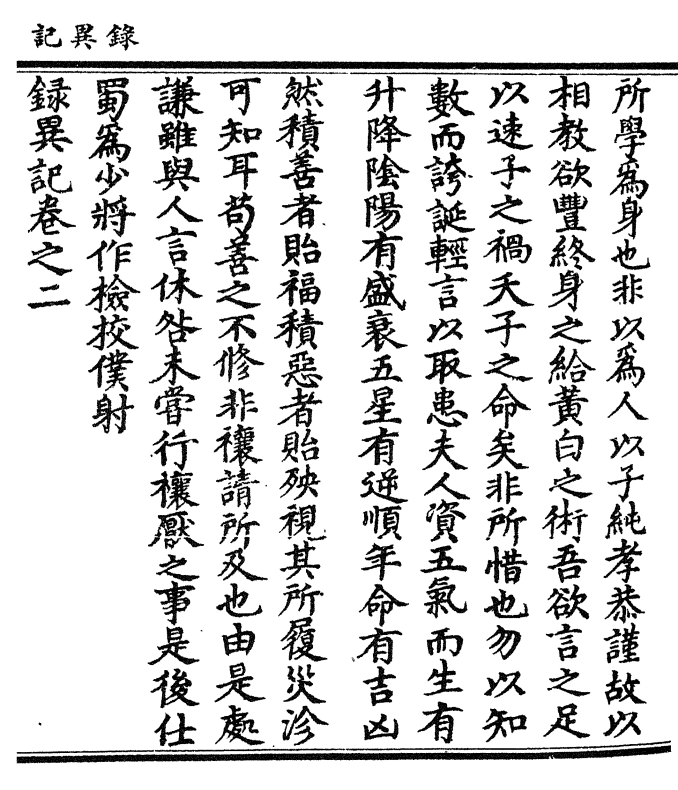 錄異記
所學爲身也非以爲人以子純孝恭謹故以
相教欲豐終身之給黃白之術吾欲言之足
以速子之禍夭子之命矣非所惜也勿以知
數而誇誕輕言以取患夫人資五氣而生有
升降陰陽有盛衰五星有逆順年命有吉凶
然積善者貽福積惡者貽殃視其所履災沴
可知耳苟善之不修非禳請所及也由是處
謙雖與人言休咎未嘗行禳厭之事是後仕
蜀爲少將作檢挍僕射
録異記卷之二